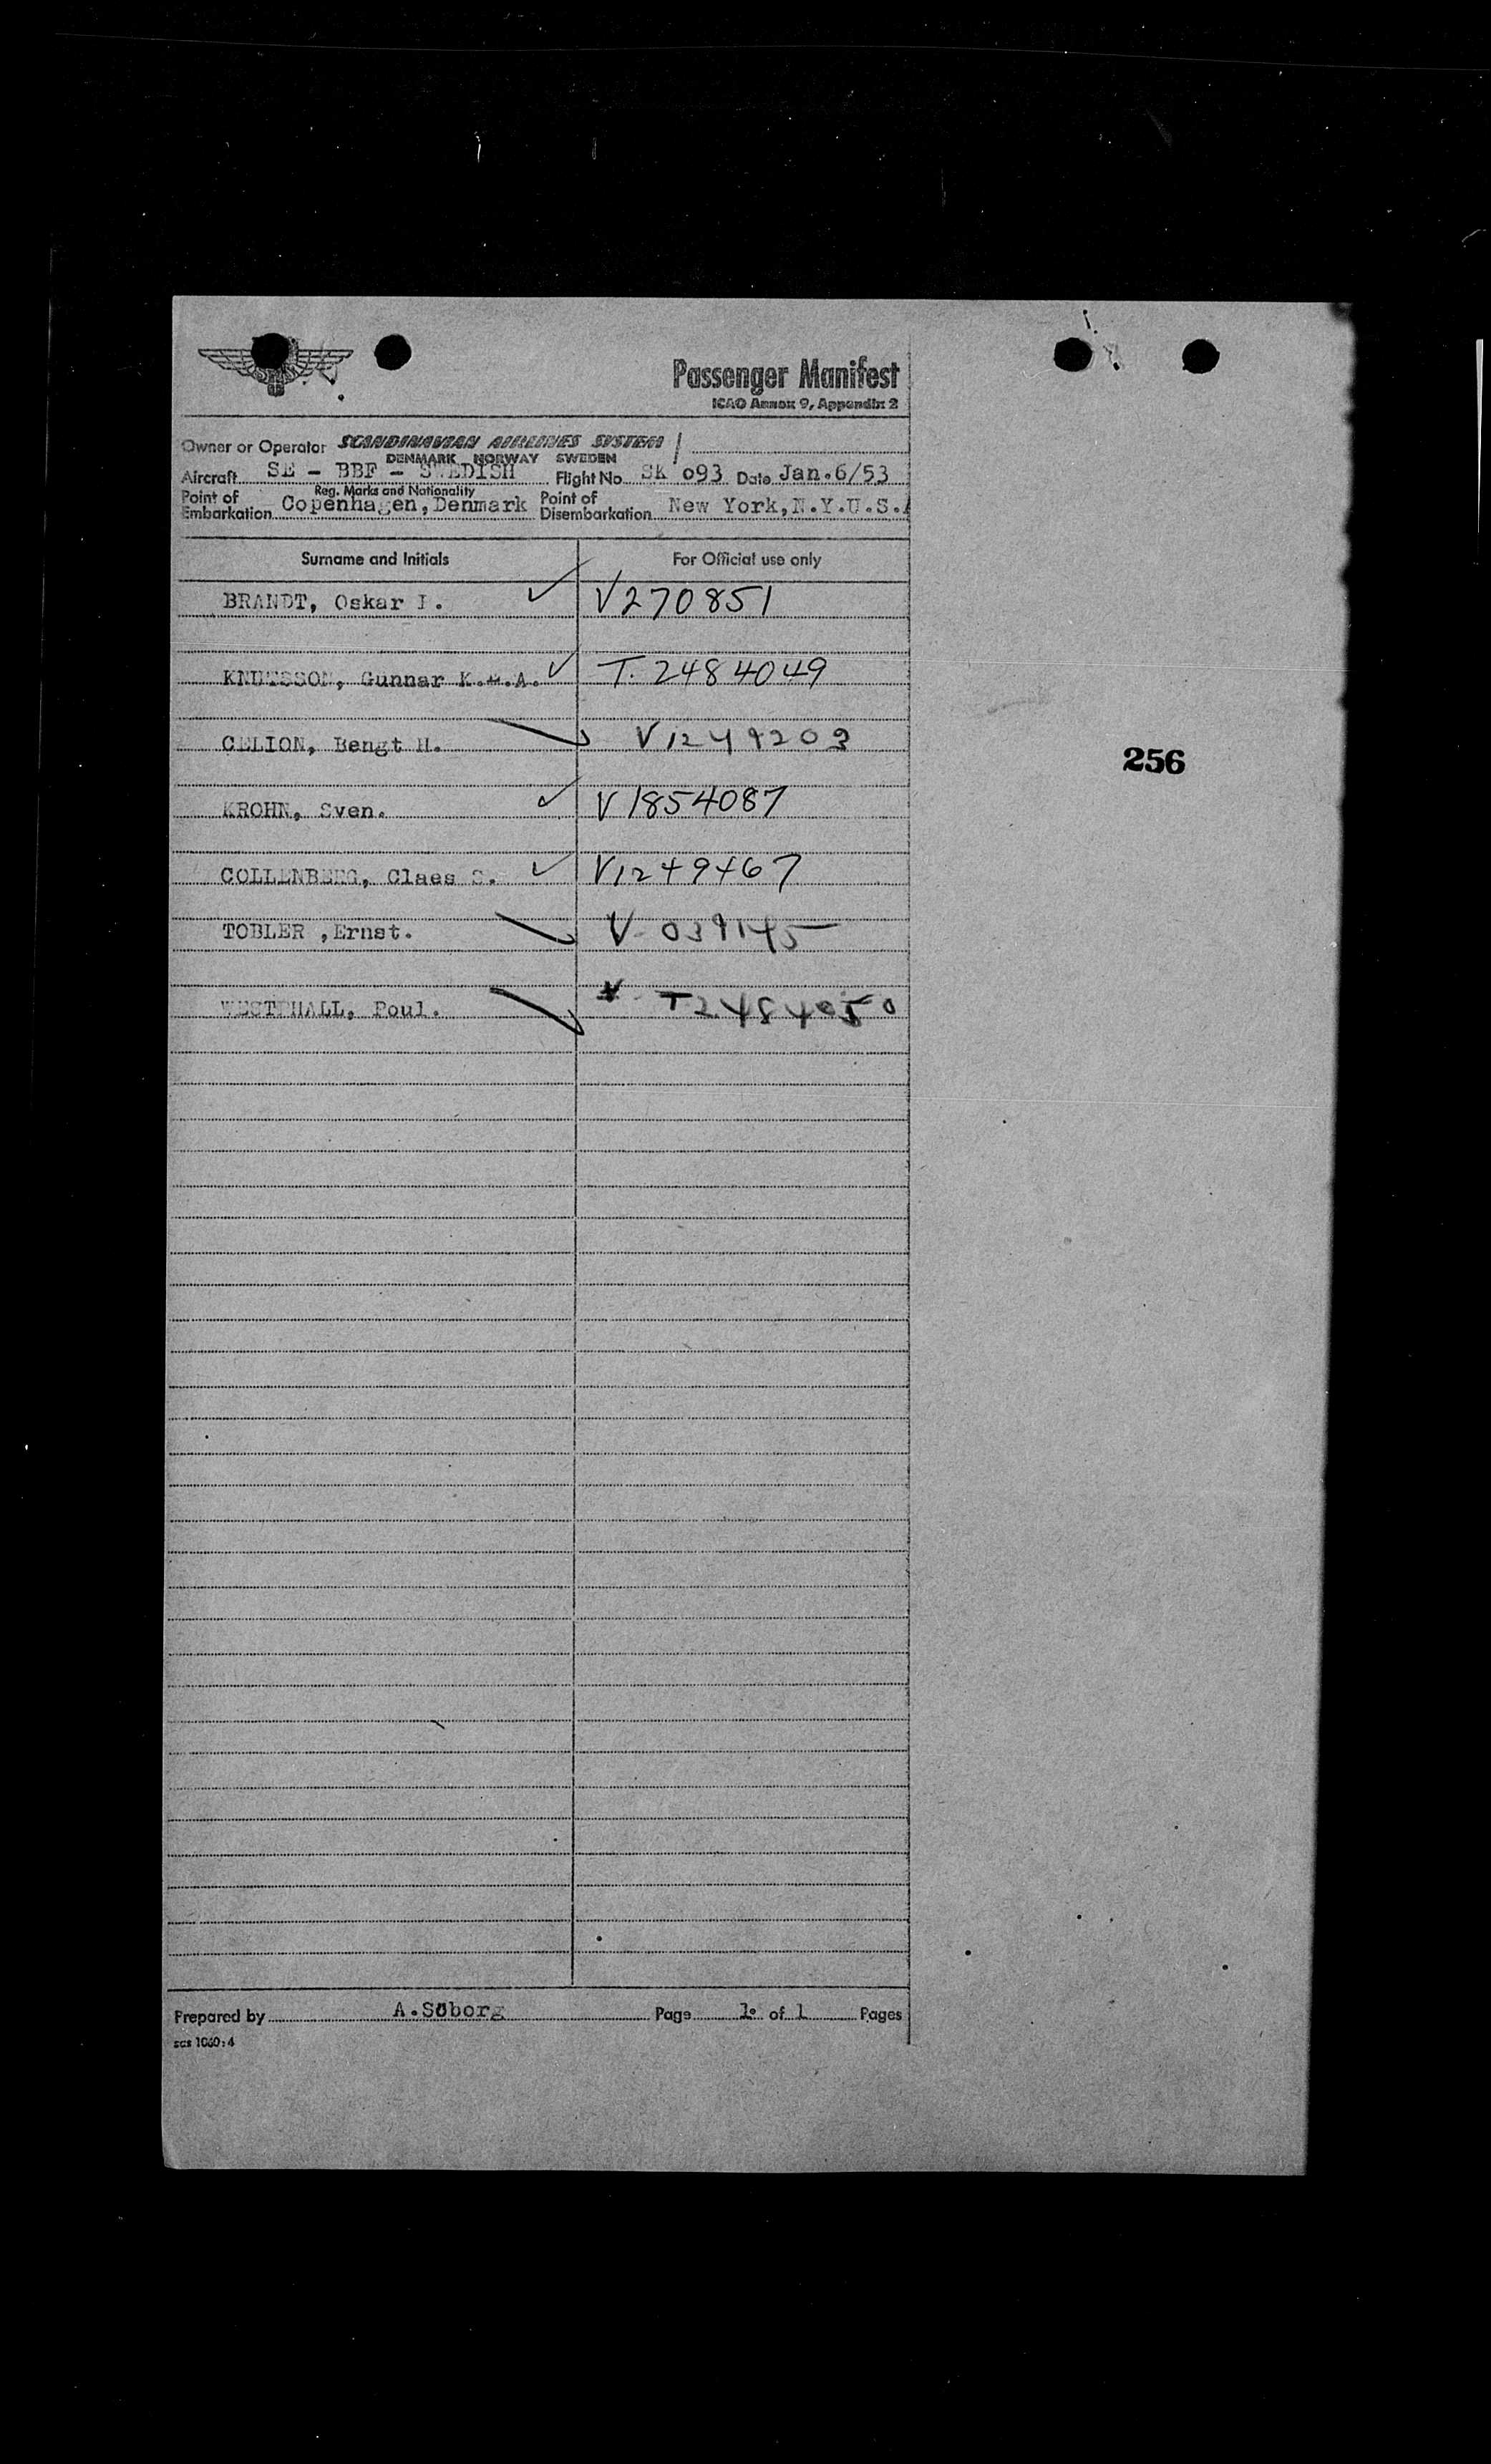 Passenger Manifest
ICAO Annex 9, Appendix 2
Owner or Operator SCANDINAVIAN AIRLINES SYSTEM
DENMARK NORWAY SWEDEN
Aircraft SE - BBF - SWEDISH Flight No. SK 093 Date Jan.6/53
Reg. Marks and Nationality
Point of Embarkation Copenhagen, Denmark Point of Disembarkation New York,N.Y.U.S.A
Surname and Initials For Official use only
BRANDT, Oskar I. V270851
KNUTSSON, Gunnar K.   .A. T. 2484049
256
CELION, Bengt H. V1249203
KROHN, Sven. V1854087
COLLENBERG, Claes S. V1249467
TOBLER ,Ernst. V 039145
WESTPHALL, Poul. T2484050
Prepared by A.Söborg Page 1. of 1 Pages
scs 1060:4